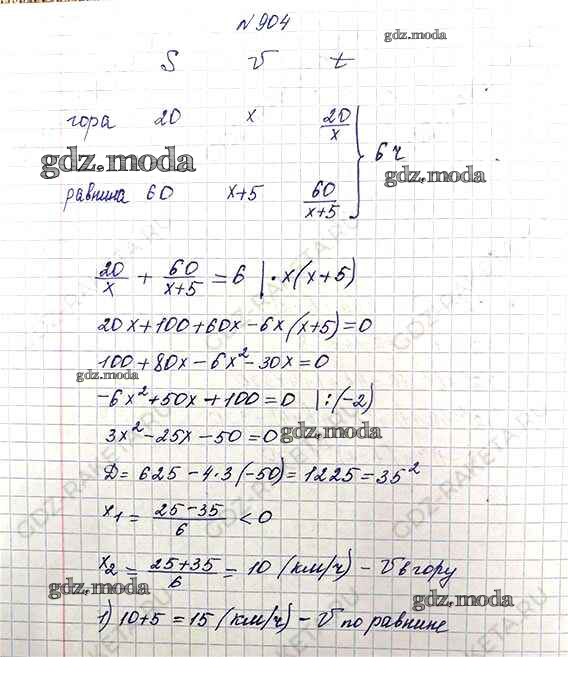 №904
gdz.moda
S V t
гора 20 x 20/x
gdz.moda
6 ч
gdz.moda
равнина 60 x+5 60/(x+5)
20/x + 60/(x+5) = 6 | · x(x+5)
20x+100+60x-6x(x+5)=0
100+80x-6x²-30x=0
gdz.moda
-6x²+50x+100=0 |:(-2)
3x²-25x-50=0
gdz.moda
D=625-4·3(-50)=1225=35²
x₁=(25-35)/6<0
x₂=(25+35)/6=10 (км/ч) - V в гору
gdz.moda
gdz.moda
1) 10+5=15 (км/ч) - V по равнине
GDZ-RAKETA.RU
GDZ-RAKETA.RU